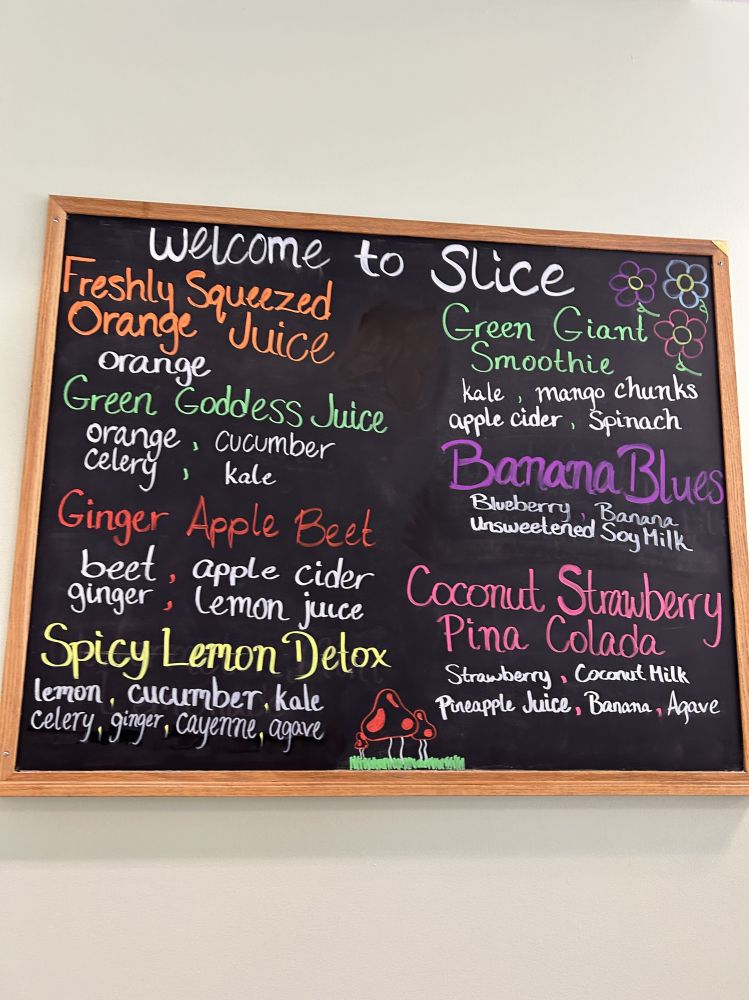 Welcome to Slice
Freshly Squeezed
Orange Juice
orange
Green Goddess Juice
orange, cucumber
celery, kale
Ginger Apple Beet
beet, apple cider
ginger, lemon juice
Spicy Lemon Detox
lemon, cucumber, kale
celery, ginger, cayenne, agave
Green Giant
Smoothie
kale, mango chunks
apple cider, Spinach
Banana Blues
Blueberry, Banana
Unsweetened Soy Milk
Coconut Strawberry
Pina Colada
Strawberry, Coconut Milk
Pineapple Juice, Banana, Agave